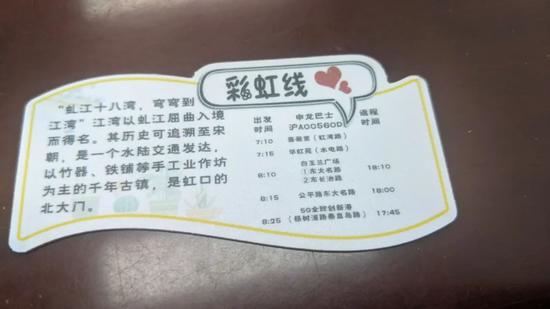 彩虹线
“虬江十八湾，弯弯到
江湾”江湾以虬江屈曲入境
而得名。其历史可追溯至宋
朝，是一个水陆交通发达，
以竹器、铁铺等手工业作坊
为主的千年古镇，是虹口的
北大门。
出发 申龙巴士 返程
时间 沪A00560D 时间
7:10 蔷薇里（虹湾路）
7:15 华虹苑（水电路）
白玉兰广场
8:10 ①东大名路 18:10
②东长治路
公平路东大名路 18:00
5G全球创新港
8:25 （杨树浦路秦皇岛路） 17:45